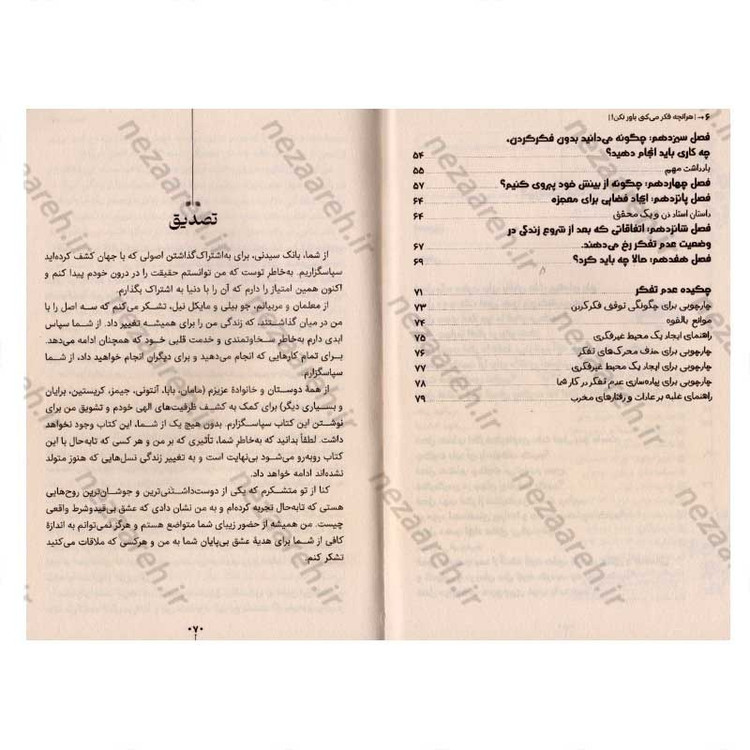 ۶ → | هرآنچه فکر می‌کنی باور نکن! |
فصل سیزدهم: چگونه می‌دانید بدون فکرکردن،
چه کاری باید انجام دهید؟ ۵۴
یادداشت مهم ۵۵
فصل چهاردهم: چگونه از بینش خود پیروی کنیم؟ ۵۷
فصل پانزدهم: ایجاد فضایی برای معجزه ۶۴
داستان استاد ذن و یک محقق ۶۴
فصل شانزدهم: اتفاقاتی که بعد از شروع زندگی در
وضعیت عدم تفکر رخ می‌دهند. ۶۷
فصل هفدهم: حالا چه باید کرد؟ ۶۹
چکیده عدم تفکر ۷۱
چارچوبی برای چگونگی توقف فکرکردن ۷۳
موانع بالقوه ۷۴
راهنمای ایجاد یک محیط غیرفکری ۷۵
چارچوبی برای حذف محرک‌های تفکر ۷۶
چارچوبی برای ایجاد یک محیط غیرفکری ۷۷
چارچوبی برای پیاده‌سازی عدم تفکر در کار شما ۷۸
راهنمای غلبه بر عادات و رفتارهای مخرب ۷۹
تصدیق
از شما، بانک سیدنی، برای به‌اشتراک‌گذاشتن اصولی که با جهان کشف کرده‌اید
سپاسگزاریم. به‌خاطر توست که من توانستم حقیقت را در درون خودم پیدا کنم و
اکنون همین امتیاز را دارم که آن را با دنیا به اشتراک بگذارم.
از معلمان و مربیانم، جو بیلی و مایکل نیل، تشکر می‌کنم که سه اصل را با
من در میان گذاشتند، که زندگی من را برای همیشه تغییر داد. از شما سپاس
ابدی دارم به‌خاطر سخاوتمندی و خدمت قلبی خود که همچنان ادامه می‌دهد.
برای تمام کارهایی که انجام می‌دهید و برای دیگران انجام خواهید داد، از شما
سپاسگزارم.
از همهٔ دوستان و خانوادهٔ عزیزم (مامان، بابا، آنتونی، جیمز، کریستین، برایان
و بسیاری دیگر) برای کمک به کشف ظرفیت‌های الهی خودم و تشویق من برای
نوشتن این کتاب سپاسگزارم. بدون هیچ یک از شما، این کتاب وجود نخواهد
داشت. لطفاً بدانید که به‌خاطر شما، تأثیری که بر من و هر کسی که تابه‌حال با این
کتاب روبه‌رو می‌شود بی‌نهایت است و به تغییر زندگی نسل‌هایی که هنوز متولد
نشده‌اند ادامه خواهد داد.
کنا از تو متشکرم که یکی از دوست‌داشتنی‌ترین و جوشان‌ترین روح‌هایی
هستی که تابه‌حال تجربه کرده‌ام و به من نشان دادی که عشق بی‌قیدوشرط واقعی
چیست. من همیشه از حضور زیبای شما متواضع هستم و هرگز نمی‌توانم به اندازهٔ
کافی از شما برای هدیهٔ عشق بی‌پایان شما به من و هرکسی که ملاقات می‌کنید
تشکر کنم.
۰۷۰
nezaareh.ir